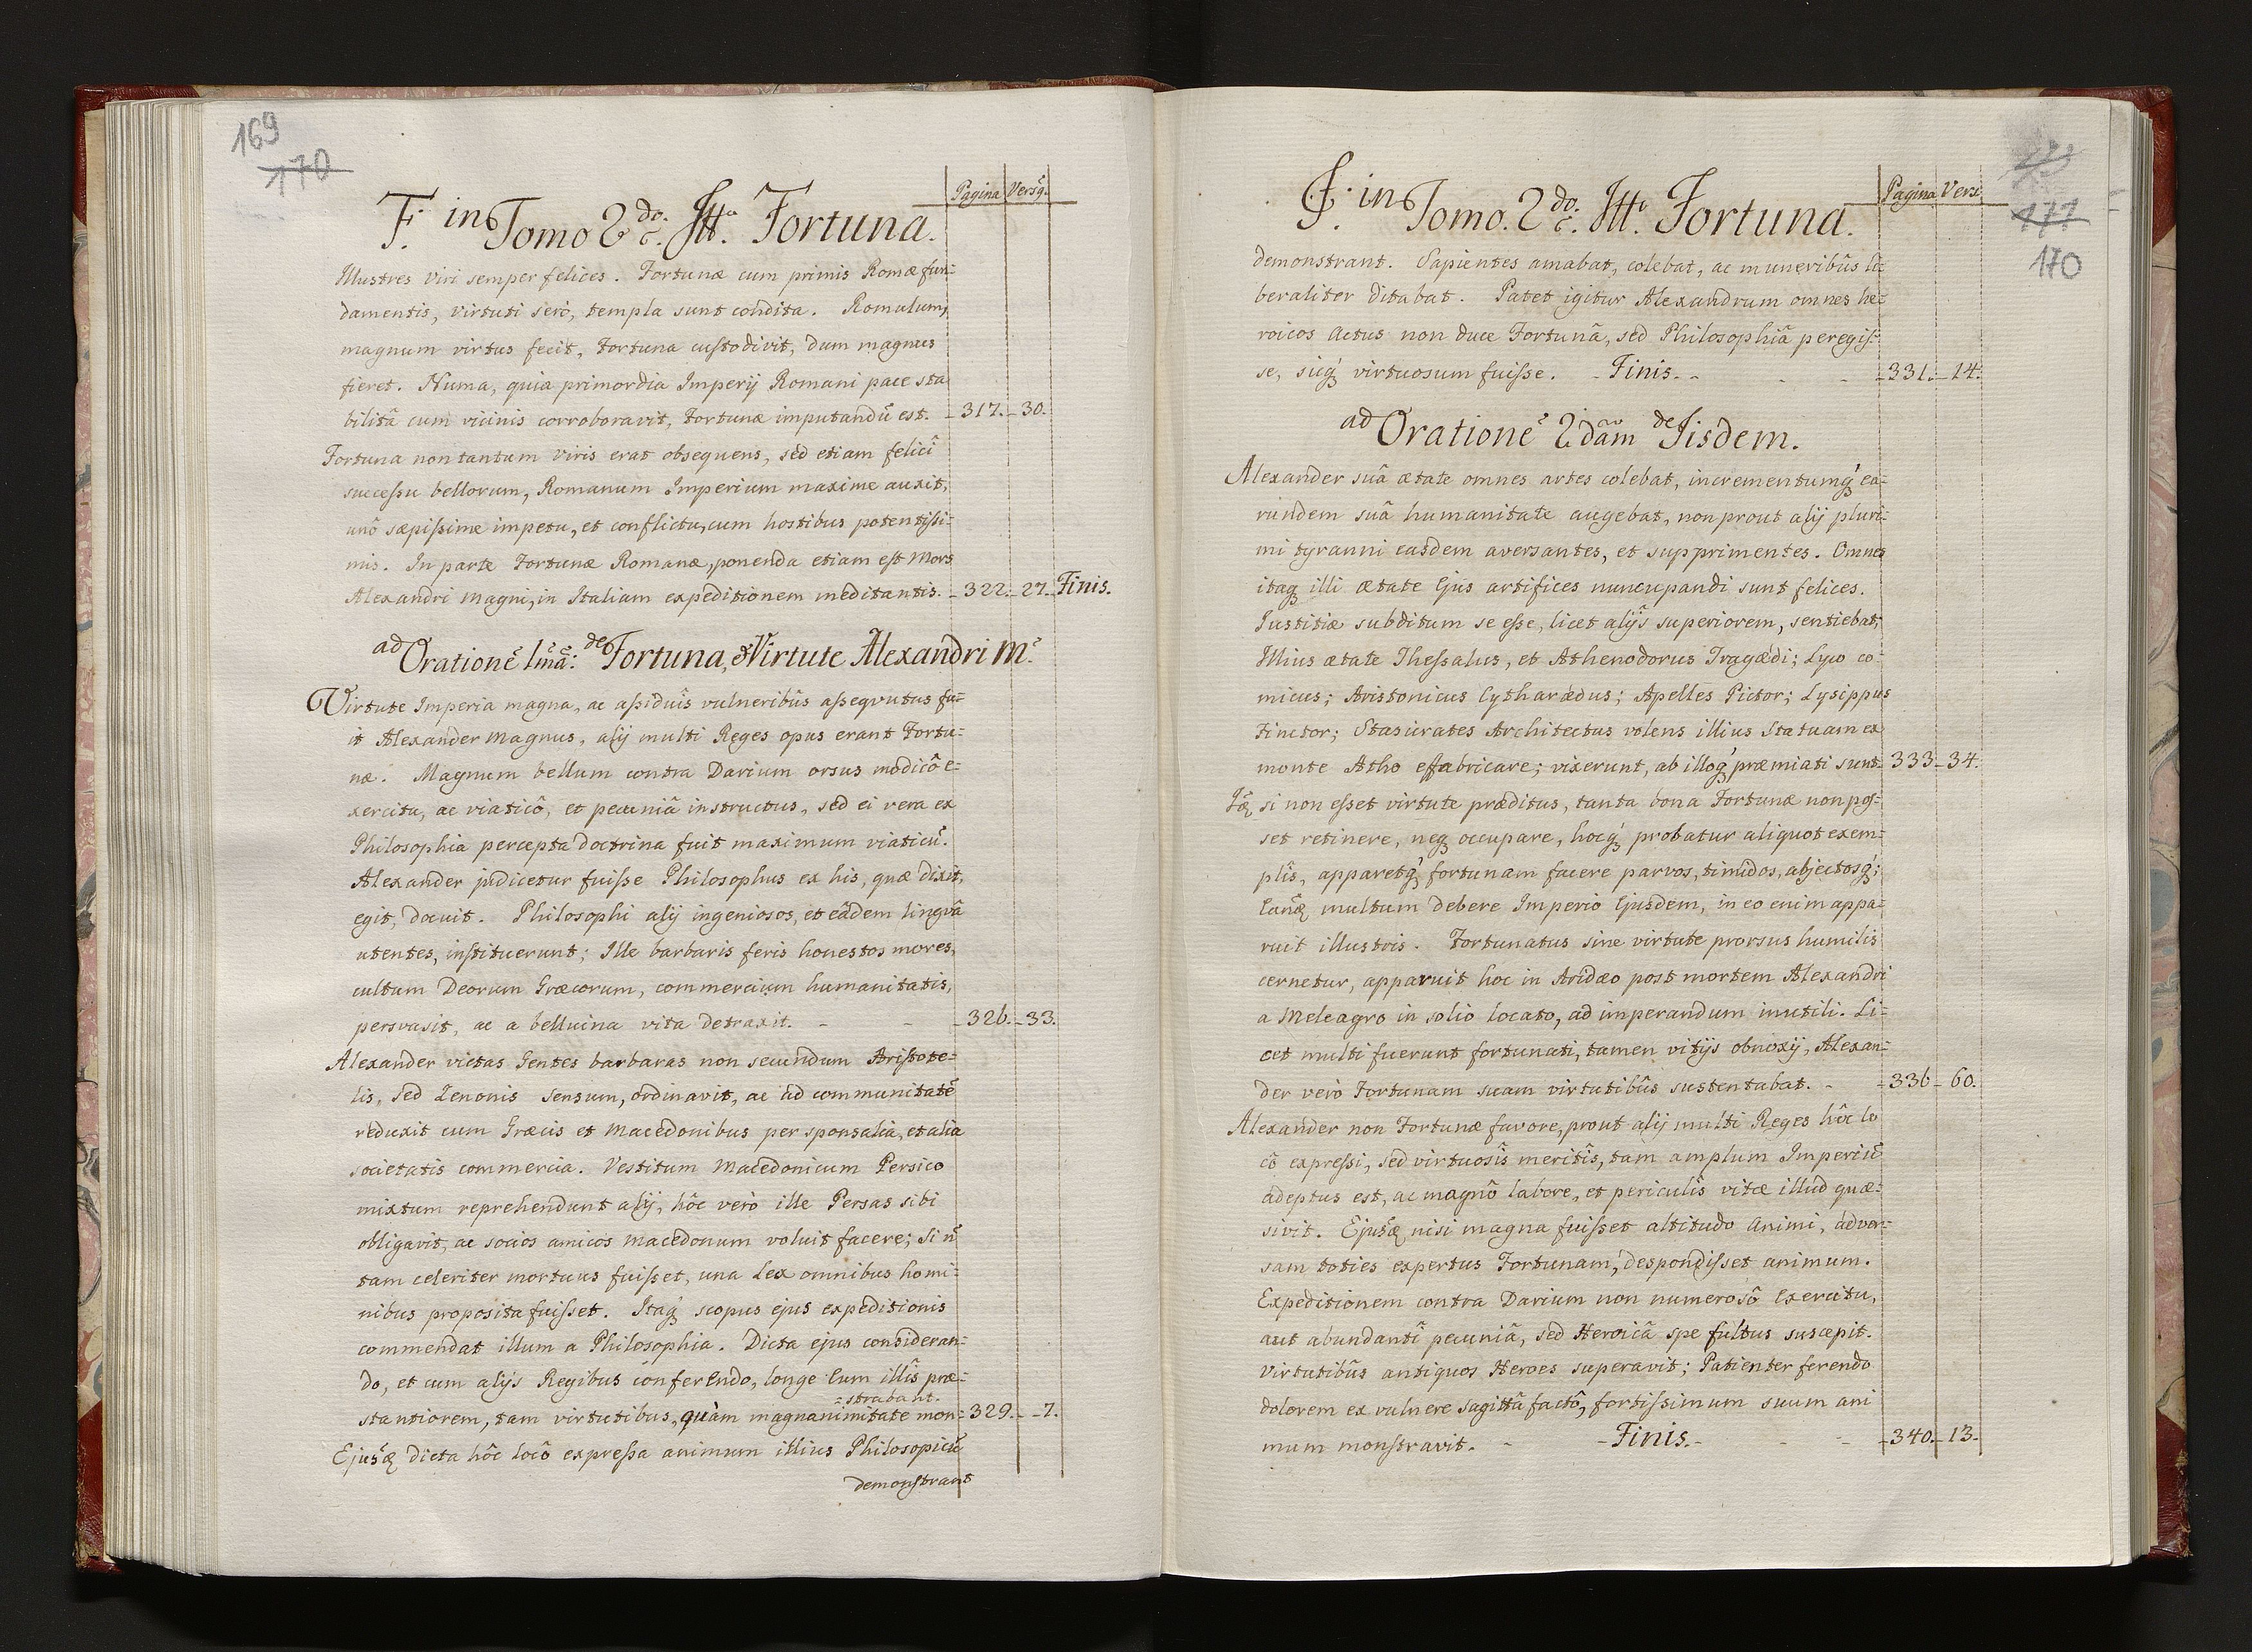 169
170
F. in Tomo 2do. Itt. Fortuna.
Pagina Versq.
Illustres viri semper felices. Fortunæ cum primis Romæ fun=
damentis, virtuti serò, templa sunt condita. Romulum,
magnum virtus fecit, Fortuna custodivit, dum magnus
fieret. Numa, quia primordia Imperij Romani pace sta
bilitâ cum vicinis corroboravit, Fortunæ imputandũ est. - 317. - 30.
Fortuna non tantum viris erat obsequens, sed etiam felici
successu bellorum, Romanum Imperium maxime auxit,
unô sæpissime impetu, et conflictu, cum hostibus potentissi=
mis. In parte Fortunæ Romanæ, ponenda etiam est Mors
Alexandri Magni, in Italiam expeditionem meditantis. - 322. - 27. Finis.
ad Orationẽ 1mã: de Fortuna, & Virtute Alexandri M.
Virtute Imperia magna, ac assiduis vulneribûs assequutus fu=
it Alexander Magnus, alij multi Reges opus erant Fortu=
næ. Magnum bellum contra Darium orsus modicô e=
xercitu, ac viaticô, et pecuniâ instructus, sed ei vera ex
Philosophia percepta doctrina fuit maximum viaticũ.
Alexander judicetur fuisse Philosophus ex his, quæ dixit,
egit, docuit. Philosophi alij ingeniosos, et eâdem lingvâ
utentes, instituerunt; Ille barbaris feris honestos mores,
cultum Deorum Græcorum, commercium humanitatis,
persvasit, ac a belluina vita detraxit. - - - 326. - 33.
Alexander victas Gentes barbaras non secundum Aristote=
lis, sed Zenonis sensum, ordinavit, ac ad communitatẽ
reduxit cum Græcis et Macedonibus per sponsalia, et alia
societatis commercia. Vestitum Macedonicum Persico
mixtum reprehendunt alij, hôc verò ille Persas sibi
obligavit, ac socios amicos Macedonum voluit facere; Si ñ
tam celeriter mortuus fuisset, una Lex omnibus homi=
nibus proposita fuisset. Itaq́ scopus ejus expeditionis
commendat illum a Philosophia. Dicta ejus consideran=
do, et cum alijs Regibus conferendo, longe Eum illîs præ=
=strabant.
stantiorem, tam virtutibus, quàm magnanimitate mon= 329. - - 7.
Ejusq dicta hôc locô expressa animum illius Philosopicũ
demonstrant
171
170
F. in Tomo. 2do. Itt. Fortuna.
Pagina Vers.
demonstrant. Sapientes amabat, colebat, ac muneribûs li=
beraliter ditabat. Patet igitur Alexandrum omnes he=
roicos actus non duce Fortunâ, sed Philosophiâ peregis=
se, sicq́ virtuosum fuisse. - Finis. - - - - 331. - 14.
ad Orationẽ 2dam de Iisdem.
Alexander suâ ætate omnes artes colebat, incrementumq́ ea=
rundem suâ humanitate augebat, non prout alij pluri=
mi tyranni easdem aversantes, et supprimentes. Omnes
itaq illi ætate Ejus artifices nuncupandi sunt felices.
Justitiæ subditum se esse, licet alijs superiorem, sentiebat,
Illius ætate Thessalus, et Athenodorus Tragædi; Lyco co=
micus; Aristonicus Cytharædus; Apelles Pictor; Lysippus
Finctor; Stasicrates Architectus volens illius Statuam ex
monte Atho effabricare; vixerunt, ab illoq́ præmiati sunt. 333. - 34.
si non esset virtute præditus, tanta bona Fortunæ non pos=
set retinere, neq occupare, hocq́ probatur aliquot exem=
plîs, apparetq́ fortunam facere parvos, timidos, abjectosq́;
Eanq multum debere Imperio Ejusdem, in eo enim appa=
ruit illustris. Fortunatus sine virtute prorsus humilis
cernetur, apparuit hoc in Aridæo post mortem Alexandri
a Meleagro in solio locato, ad imperandum inutili. Li=
cet multi fuerunt fortunati, tamen vitijs obnoxij, Alexan=
der verò Fortunam suam virtutibûs sustentabat. - - 336 - 60.
Alexander non Fortunæ favore, prout alij multi Reges hôc lo
cô expressi, sed virtuosîs meritîs, tam amplum Imperiũ
adeptus est, ac magnô labore, et periculîs vitæ illud quæ=
sivit. Ejusq nisi magna fuisset altitudo animi, adver=
sam toties expertus Fortunam, despondisset animum.
Expeditionem contra Darium non numerosô Exercitu,
aut abundantî pecuniâ, sed Heroicâ spe fultus suscepit.
Virtutibûs antiquos Heroes superavit; Patienter ferendo
dolorem ex vulnere sagittâ factô, fortissimum suum ani
mum monstravit. - - Finis. - - - - 340. - 13.